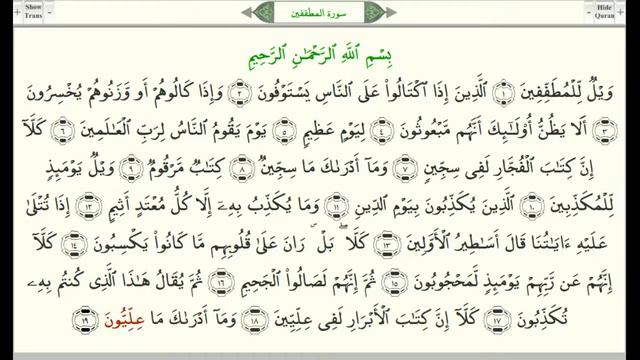 Show Trans
سورة المطففين
Hide Quran
بِسْمِ ٱللَّهِ ٱلرَّحْمَٰنِ ٱلرَّحِيمِ
وَيْلٌ لِّلْمُطَفِّفِينَ ١ ٱلَّذِينَ إِذَا ٱكْتَالُوا۟ عَلَى ٱلنَّاسِ يَسْتَوْفُونَ ٢ وَإِذَا كَالُوهُمْ أَو وَّزَنُوهُمْ يُخْسِرُونَ
٣ أَلَا يَظُنُّ أُو۟لَٰٓئِكَ أَنَّهُم مَّبْعُوثُونَ ٤ لِيَوْمٍ عَظِيمٍ ٥ يَوْمَ يَقُومُ ٱلنَّاسُ لِرَبِّ ٱلْعَٰلَمِينَ ٦ كَلَّآ
إِنَّ كِتَٰبَ ٱلْفُجَّارِ لَفِى سِجِّينٍ ٧ وَمَآ أَدْرَىٰكَ مَا سِجِّينٌ ٨ كِتَٰبٌ مَّرْقُومٌ ٩ وَيْلٌ يَوْمَئِذٍ
لِّلْمُكَذِّبِينَ ١٠ ٱلَّذِينَ يُكَذِّبُونَ بِيَوْمِ ٱلدِّينِ ١١ وَمَا يُكَذِّبُ بِهِۦٓ إِلَّا كُلُّ مُعْتَدٍ أَثِيمٍ ١٢ إِذَا تُتْلَىٰ
عَلَيْهِ ءَايَٰتُنَا قَالَ أَسَٰطِيرُ ٱلْأَوَّلِينَ ١٣ كَلَّا ۖ بَلْ ۜ رَانَ عَلَىٰ قُلُوبِهِم مَّا كَانُوا۟ يَكْسِبُونَ ١٤ كَلَّآ
إِنَّهُمْ عَن رَّبِّهِمْ يَوْمَئِذٍ لَّمَحْجُوبُونَ ١٥ ثُمَّ إِنَّهُمْ لَصَالُوا۟ ٱلْجَحِيمِ ١٦ ثُمَّ يُقَالُ هَٰذَا ٱلَّذِى كُنتُم بِهِۦ
تُكَذِّبُونَ ١٧ كَلَّآ إِنَّ كِتَٰبَ ٱلْأَبْرَارِ لَفِى عِلِّيِّينَ ١٨ وَمَآ أَدْرَىٰكَ مَا عِلِّيُّونَ ١٩